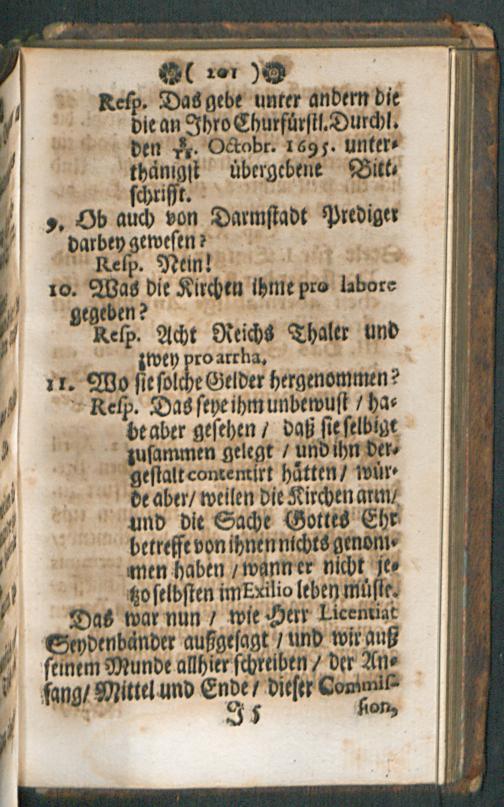 ( 101 )
Resp. Das gebe unter andern die
die an Jhro Churfürstl. Durchl.
den 5/15. Octobr. 1695. unter-
thänigst übergebene Bitt-
schrifft.
9. Ob auch von Darmstadt Prediger
darbey gewesen?
Resp. Nein!
10. Was die Kirchen ihme pro labore
gegeben?
Resp. Acht Reichs Thaler und
zwey pro arrha.
11. Wo sie solche Gelder hergenommen?
Resp. Das seye ihm unbewust / ha-
be aber gesehen / daß sie selbige
zusammen gelegt / und ihn der-
gestalt contentirt hätten / wür-
de aber / weilen die Kirchen arm/
und die Sache Gottes Ehr
betreffe von ihnen nichts genom-
men haben / wann er nicht je-
tzo selbsten im Exilio leben müste.
Das war nun / wie Herr Licentiat
Seydenbänder außgesagt / und wir auß
seinem Munde allhier schreiben / der An-
fang/ Mittel und Ende / dieser Commis-
J 5 sion,